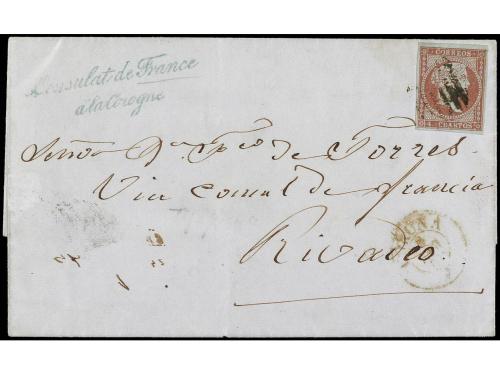 Consulat de France
à la Corogne
CORREOS
CUARTOS
Señor Dn. Fco de Torres
Vice consul de francia
Rivadeo